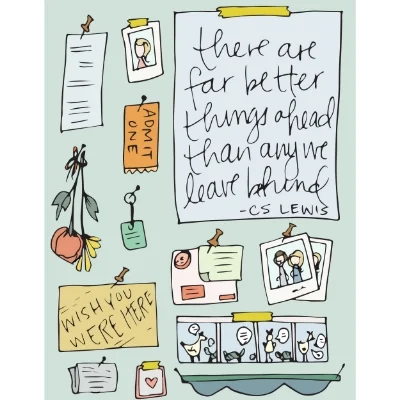 there are
far better
things ahead
than any we
leave behind
-CS LEWIS
ADMIT
ONE
WISH YOU
WERE HERE